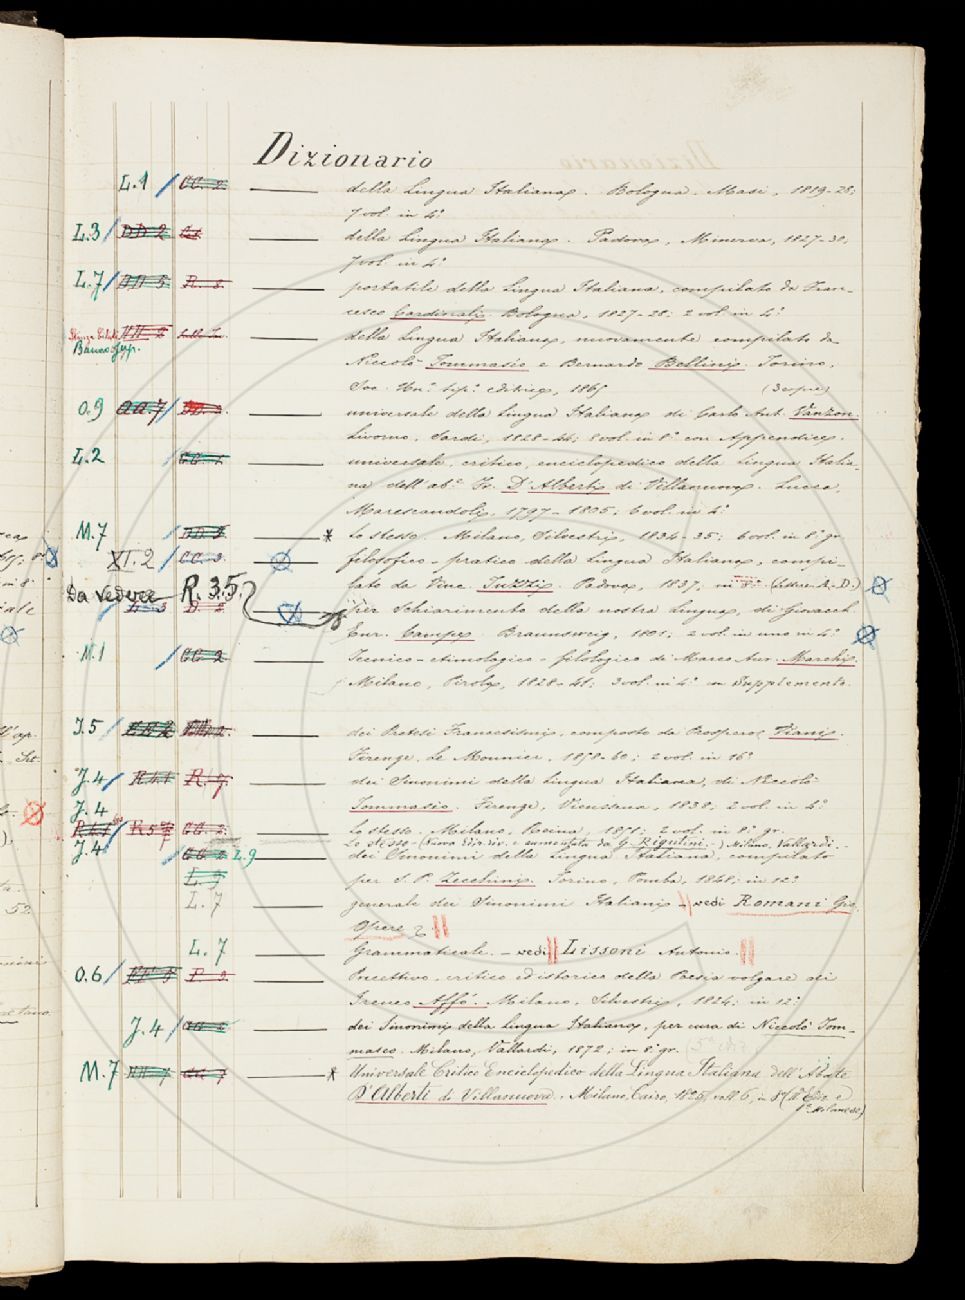 Dizionario
L.1 / CC. 2 — della Lingua Italiana. Bologna. Masi, 1819-28;
7 vol. in 4º
L.3 / DD 2 — della Lingua Italiana. Padova, Minerva, 1827-30,
7 vol. in 4º
L.7 / R. — portatile della Lingua Italiana, compilato da Fran-
cesco Cardinali. Bologna, 1827-28; 2 vol. in 4º
HH 2 — della Lingua Italiana, nuovamente compilato da
Banco
Niccolò Tommaseo e Bernardo Bellini. Torino,
Soc. Un.e tip.e editrice, 1865
O.9 / — universale della Lingua Italiana di Carlo Ant. Vanzon.
Livorno, Sardi, 1828-44; 8 vol. in 8º con Appendice.
L.2 — universale, critico, enciclopedico della Lingua Italia-
na dell'ab.e Fr. D'Alberti di Villanuova. Lucca,
Marescandoli, 1797-1805; 6 vol. in 4º
M.7 / — * Lo stesso. Milano, Silvestri, 1834-35; 6 vol. in 8º gr.
XI.2 / CC. 3. — filosofico-pratico della Lingua Italiana, compi-
lato da Vinc. Tuzzi. Padova, 1837; in 8º (Lettere A-D.)
Da vedere R. 35.
D. 2 — per Schiarimento della nostra Lingua, di Gioacch
Enr. Campe. Braunsweig, 1801; 2 vol. in uno in 4º
M.1 / CC 2 — Tecnico-etimologico-filologico di Marco Aur. Marchi.
Milano, Pirola, 1828-41; 2 vol. in 4º con Supplemento.
J.5 / — dei Pretesi Francesismi, composto da Prospero Viani.
Firenze, Le Monnier, 1858-60; 2 vol. in 16º
J.4 / R. — dei Sinonimi della Lingua Italiana, di Niccolò
J.4
Tommaseo. Firenze, Vieusseux, 1838; 2 vol. in 4º
— Lo stesso. Milano, 2 vol. in 8º gr.
J.4
Lo stesso (Nuova Ediz. riv. e aumentata da G. Rigutini.) Milano, Vallardi.
/ CC 2 L.9 — dei Sinonimi della Lingua Italiana, compilato
L.9
per S. P. Zecchini. Torino, Pomba, 1848; in 12º
L.7 generale dei Sinonimi Italiani — vedi Romani Gio.
Opere
L.7 — Grammaticale. — vedi Lissoni Antonio.
O.6 / — Precettivo, critico ed istorico della Poesia volgare di
Ireneo Affò. Milano, Silvestri, 1824; in 12º
J.4 / — dei Sinonimi della Lingua Italiana, per cura di Niccolò Tom-
maseo. Milano, Vallardi, 1872; in 8º gr.
M.7 — * Universale Critico Enciclopedico della Lingua Italiana dell'Abate
D'Alberti di Villanuova. Milano, Cairo, 1825, voll. 6, in 8º